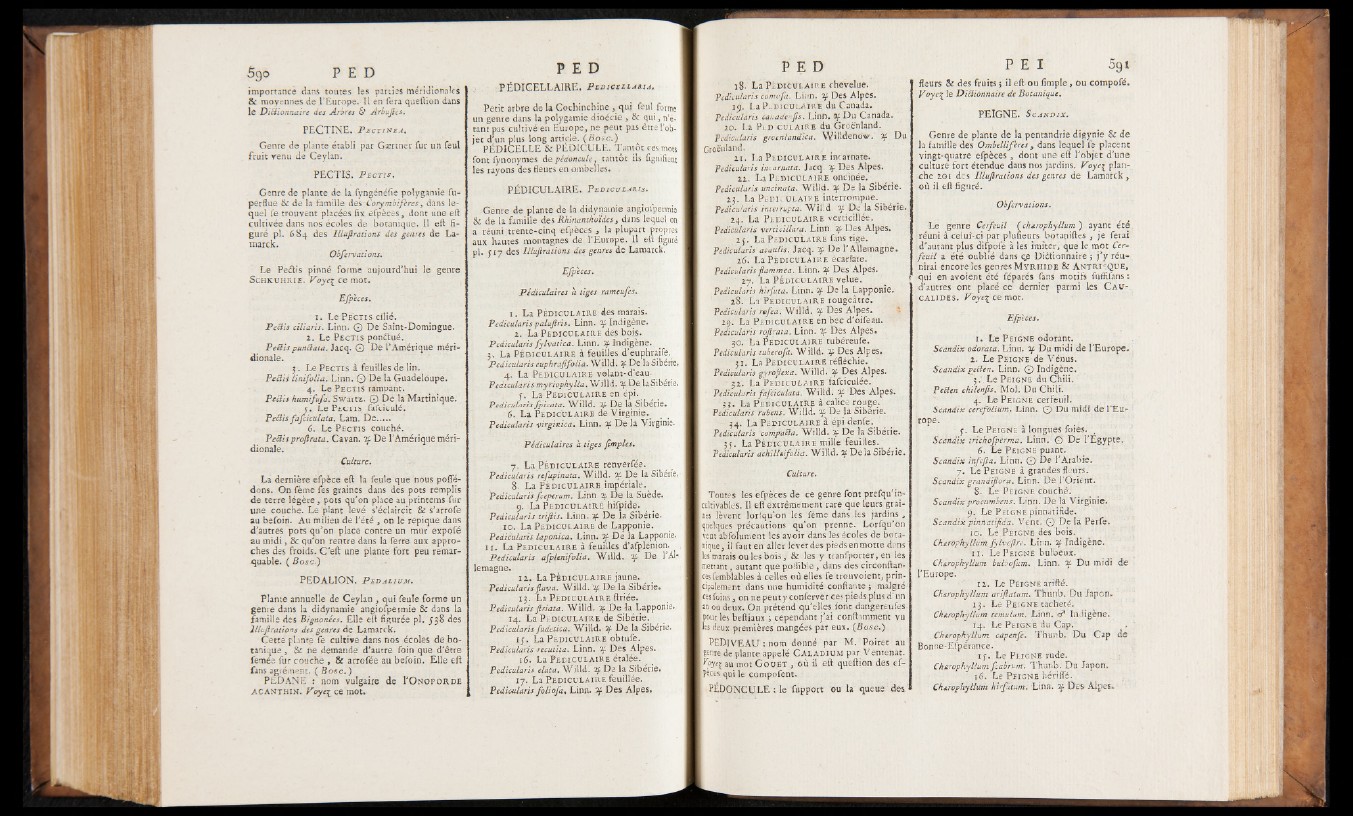 590 P E D
importance dans toutes les parties méridionales
& moyennes de l'Europe. Il en sera question dans
le Dictionnaire des Arbres & Arbustes.
PECTINE. PECTINEA.
Genre de plante établi par Gærtner sur un seul
fruit venu de Ceylan.
PECTIS. PECTIS.
Genre de plante de la syngénésie polygamie su-
perflue & de la famille des Corymbifères, dans le-
quel se trouvent placées six espèces, dont une est
cultivée dans nos écoles de botanique. Il est fi-
guré pl. 684 des Illustrations des genres de La-
marck.
Observations.
Le Pectis pinné forme aujourd'hui le genre
SCHKUHRIE. Voyez ce mot.
Espèces.
1. Le PECTIS cilié.
Pectis ciliaris. Linn. ☉ De Saint-Domingue.
2. Le PECTIS ponctué.
Pectis punctata. Jacq. ☉ De l'Amérique méri-
dionale.
3. Le PECTIS à feuilles de lin.
Pectis linifolia. Linn. ☉ De la Guadeloupe.
4. Le PECTIS rampant.
Pectis humifusa. Swartz. ☉ De la Martinique.
5. Le PECTIS fasciculé.
Pectis fasciculata. Lam. De.....
6. Le PECTIS couché.
Pectis prostrata. Cavan. ♃ De l'Amérique méri-
dionale.
Culture.
La dernière espèce est la seule que nous possé-
dons. On sème ses graines dans des pots remplis
de terre légère, pots qu'on place au printems sur
une couche. Le plant levé s'éclaircit & s'arrose
au besoin. Au milieu de l'été, on le repique dans
d'autres pots qu'on place contre un mur exposé
au midi, & qu'on rentre dans la serre aux appro-
ches des froids. C'est une plante fort peu remar-
quable. ( Bosc.)
PEDALION. PEDALIUM.
Plante annuelle de Ceylan, qui seule forme un
genre dans la didynamie angiospermie & dans la
famille des Bignonées. Elle est figurée pl. 538 des
Illustrations des genres de Lamarck.
Cette plante se cultive dans nos écoles de bo-
tanique, & ne demande d'autre soin que d'être
semée sur couche, & arrosée au besoin. Elle est
sans agrément. ( Bosc.)
PEDANE : nom vulgaire de l'ONOPORDE
ACANTHIN. Voyez ce mot.
P E D
PÉDICELLAIRE. PEDICELLARIA.
Petit arbre de la Cochinchine, qui seul forme
un genre dans la polygamie dioécie, & qui, n'é-
tant pas cultivé en Europe, ne peut pas être l'ob-
jet d'un plus long article. ( Bosc.)
PÉDICELLE & PÉDICULE. Tantôt ces mots
sont synonymes de pédoncule, tantôt ils signifient
les rayons des fleurs en ombelles.
PÉDICULAIRE. PEDICULARIS.
Genre de plante de la didynamie angiospermie
& de la famille des Rhinanthoïdes, dans lequel on
a réuni trente-cinq espèces, la plupart propres
aux hautes montagnes de l'Europe. Il est figuré
pl. 517 des Illustrations des genres de Lamarck.
Espèces.
Pédiculaires à tiges rameuses.
1. La PEDICULAIRE des marais.
Pedicularis palustris. Linn. ♃ Indigène.
2. La PEDICULAIRE des bois.
Pedicularis sylvatica. Linn. ♃ Indigène.
3. La PÉDICULAIRE à feuilles d'euphraise.
Pedicularis euphrasifolia. Willd. ♃ De la Sibérie.
4. La PEDICULAIRE volant-d'eau.
Pedicularis myriophylla. Willd. ♃ De la Sibérie.
5. La PÉDICULAIRE en épi.
Pedicularis spicata. Willd. ♃ De la Sibérie.
6. La PEDICULAIRE de Virginie.
Pedicularis virginica. Linn. ♃ De la Virginie.
Pédiculaires à tiges simples.
7. La PÉDICULAIRE renversée.
Pedicularis resupinata. Willd. ♃ De la Sibérie.
8. La PEDICULAIRE impériale.
Pedicularis sceptrum. Linn. ♃ De la Suède.
9. La PEDICULAIRE hispide.
Pedicularis tristis. Linn. ♃ De la Sibérie.
10. La PEDICULAIRE de Lapponie.
Pedicularis laponica. Linn. ♃ De la Lapponie.
11. La PEDICULAIRE à feuilles d'asplenion.
Pedicularis asplenifolia. Willd. ♃ De l'Al-
lemagne.
12. La PÉDICULAIRE jaune.
Pedicularis flava. Willd. ♃ De la Sibérie.
13. La PEDICULAIRE striée.
Pedicularis striata. Willd. ♃ De la Lapponie.
14. La PEDICULAIRE de Siberie.
Pedicularis sudetica. Willd. ♃ De la Sibérie.
15. La PEDICULAIRE obtuse.
Pedicularis recutita. Linn. ♃ Des Alpes.
16. La PEDICULAIRE étalée.
Pedicularis elata. Willd. ♃ De la Sibérie.
17. La PEDICULAIRE feuillée.
Pedicularis foliosa. Linn. ♃ Des Alpes.
P E D
18. La PÉDICULAIRE chevelue.
Pedicularis comosa. Linn. ♃ Des Alpes.
19. La PEDICULAIRE du Canada.
Pedicularis canadensis. Linn. ♃ Du Canada.
20. La PEDICULAIRE du Groënland.
Pedicularis groenlandica. Willdenow. ♃ Du
Groënland.
21. La PEDICULAIRE incarnate.
Pedicularis incarnata. Jacq. ♃ Des Alpes.
22. La PEDICULAIRE oncinée.
Pedicularis uncinata. Willd. ♃ De la Sibérie.
23. La PEDICULAIRE interrompue.
Pedicularis interrupta. Willd. ♃ De la Sibérie.
24. La PEDICULAIRE verticillée.
Pedicularis verticillata. Linn. ♃ Des Alpes.
25. La PEDICULAIRE sans tige.
Pedicularis acaulis. Jacq. ♃ De l'Allemagne.
26. La PEDICULAIRE écarlate.
Pedicularis flammea. Linn. ♃ Des Alpes.
27. La PÉDICULAIRE velue.
Pedicularis hirsuta. Linn. ♃ De la Lapponie.
28. La PEDICULAIRE rougeâtre.
Pedicularis rosea. Willd. ♃ Des Alpes.
29. La PEDICULAIRE en bec d'oiseau.
Pedicularis rostrata. Linn. ♃ Des Alpes.
30. La PEDICULAIRE tubéreuse.
Pedicularis tuberosa. Willd. ♃ Des Alpes.
31. La PEDICULAIRE réfléchie.
Pedicularis gyroflexa. Willd. ♃ Des Alpes.
32. La PEDICULAIRE fasciculée.
Pedicularis fasciculata. Willd. ♃ Des Alpes.
33. La PEDICULAIRE à calice rouge.
Pedicularis rubens. Willd. ♃ De la Sibérie.
34. La PEDICULAIRE à épi dense.
Pedicularis compacta. Willd. ♃ De la Sibérie.
35. La PEDICULAIRE mille feuilles.
Pedicularis achilleifolia. Willd. ♃ De la Sibérie.
Culture.
Toutes les espèces de ce genre sont presqu'in-
cultivables. Il est extrêmement rare que leurs grai-
nes lèvent lorsqu'on les sème dans les jardins,
quelques précautions qu'on prenne. Lorsqu'on
veut absolument les avoir dans les écoles de bota-
nique, il faut en aller lever des pieds en motte dans
les marais ou les bois, & les y transporter, en les
mettant, autant que possible, dans des circonstan-
ces semblables à celles où elles se trouvoient, prin-
cipalement dans une humidité constante; malgré
ces soins, on ne peut y conserver ces pieds plus d'un
an ou deux. On prétend qu'elles sont dangereuses
pour les bestiaux; cependant j'ai constamment vu
les deux premières mangées par eux. ( Bosc.)
PEDIVEAU : nom donné par M. Poiret au
genre de plante appelé CALADIUM par Ventenat.
Voyez au mot GOUET, où il est question des es-
pèces qui le composent.
PÉDONCULE : le support ou la queue des
P E I 591
fleurs & des fruits; il est ou simple, ou composé.
Voyez le Dictionnaire de Botanique.
PEIGNE. SCANDIX.
Genre de plante de la pentandrie digynie & de
la famille des Ombellifères, dans lequel se placent
vingt-quatre espèces, dont une est l'objet d'une
culture fort étendue dans nos jardins. Voyez plan-
che 201 des Illustrations des genres de Lamarck,
où il est figuré.
Observations.
Le genre Cerfeuil (chærophyllum) ayant été
réuni à celui-ci par plusieurs botanistes, je serai
d'autant plus disposé à les imiter, que le mot Cer-
feuil a été oublié dans ce Dictionnaire; j'y réu-
nirai encore les genres MYRRHIDE & ANTRISQUE,
qui en avoient été séparés sans motifs suffisans :
d'autres ont placé ce dernier parmi les CAU-
CALIDES. Voyez ce mot.
Espèces.
1. Le PEIGNE odorant.
Scandix odorata. Linn. ♃ Du midi de l'Europe.
2. Le PEIGNE de Vénus.
Scandix pecten. Linn. ☉ Indigène.
3. Le PEIGNE du Chili.
Pecten chilensis. Mol. Du Chili.
4. Le PEIGNE cerfeuil.
Scandix cerefolium. Linn. ☉ Du midi de l'Eu-
rope.
5. Le PEIGNE à longues soies.
Scandix trichosperma. Linn. ☉ De l'Égypte.
6. Le PEIGNE puant.
Scandix infesta. Linn. ☉ De l'Arabie.
7. Le PEIGNE à grandes fleurs.
Scandix grandiflora. Linn. De l'Orient.
8. Le PEIGNE couché.
Scandix procumbens. Linn. De la Virginie.
9. Le PEIGNE pinnatifide.
Scandix pinnatifida. Vent. ☉ De la Perse.
10. Le PEIGNE des bois.
Chærophyllum sylvestre. Linn. ♃ Indigène.
11. Le PEIGNE bulbeux.
Chærophyllum bulbosum. Linn. ♃ Du midi de
l'Europe.
12. Le PEIGNE aristé.
Chærophyllum aristatum. Thunb. Du Japon.
13. Le PEIGNE tacheté.
Chærophyllum temulum. Linn. ♂ Indigène.
14. Le PEIGNE du Cap.
Chærophyllum capense. Thunb. Du Cap de
Bonne-Espérance.
15. Le PEIGNE rude.
Chærophyllum scabrum. Thunb. Du Japon.
16. Le PEIGNE hérissé.
Chærophyllum hirsutum. Linn. ♃ Des Alpes.